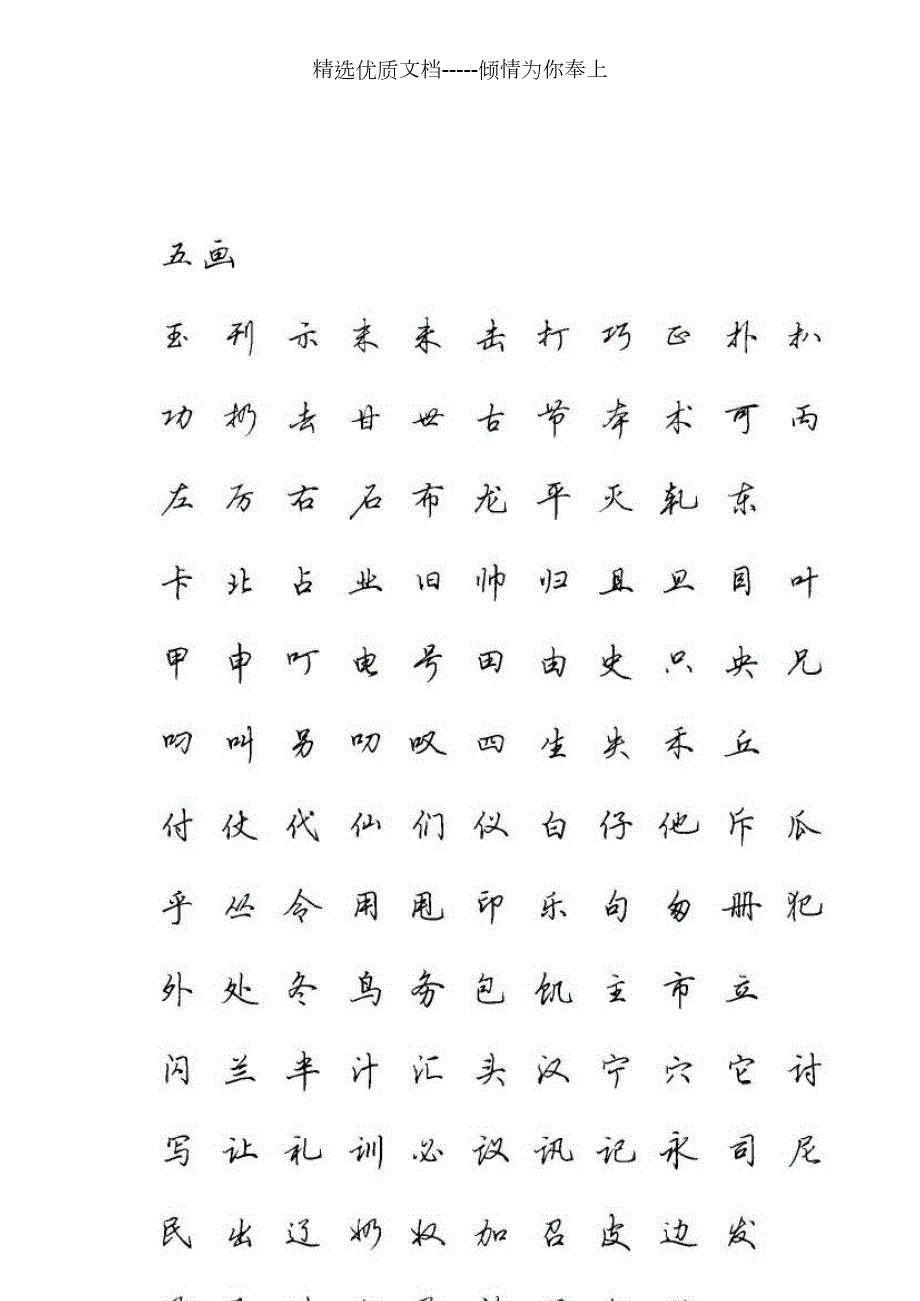 精选优质文档-----倾情为你奉上
五画
玉 刊 示 末 未 击 打 巧 正 扑 扒
功 扔 去 甘 世 古 节 本 术 可 丙
左 厉 右 石 布 龙 平 灭 轧 东
卡 北 占 业 旧 帅 归 且 旦 目 叶
甲 申 叮 电 号 田 由 史 只 央 兄
叼 叫 另 叨 叹 四 生 失 禾 丘
付 仗 代 仙 们 仪 白 仔 他 斥 瓜
乎 丛 令 用 甩 印 乐 句 匆 册 犯
外 处 冬 鸟 务 包 饥 主 市 立
闪 兰 半 汁 汇 头 汉 宁 穴 它 讨
写 让 礼 训 必 议 讯 记 永 司 尼
民 出 辽 奶 奴 加 召 皮 边 发